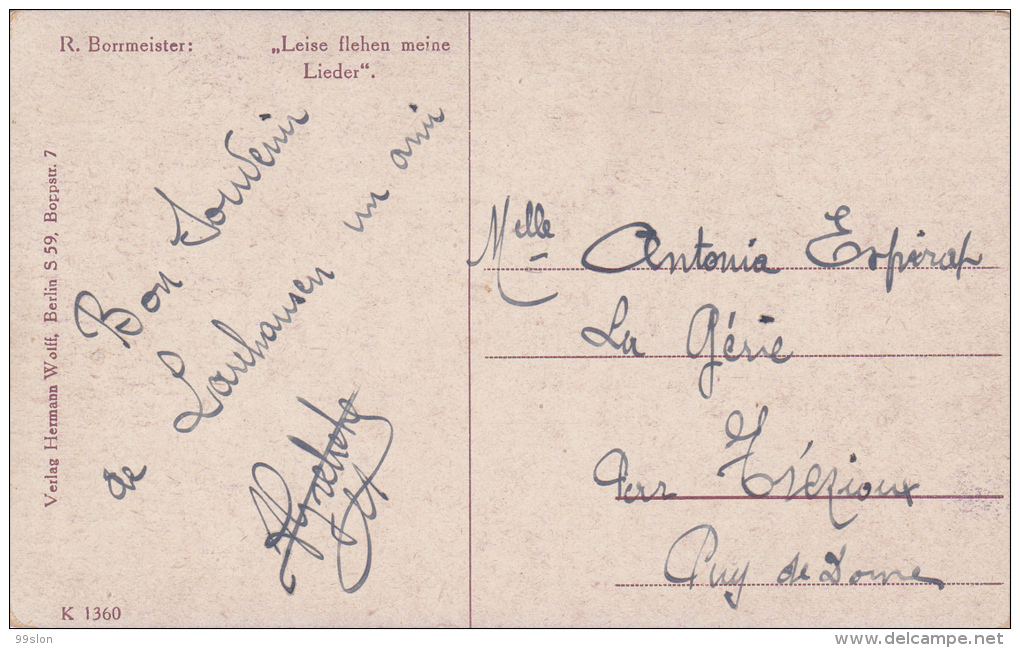 R. Borrmeister: „Leise flehen meine
Lieder“.
Verlag Hermann Wolff, Berlin S 59, Boppstr. 7
Bon Souvenir
de Lauhausen
un ami
K 1360
Melle Antonia Espirat
La Génie
Par Trézioux
Puy de Dome
99slon
www.delcampe.net